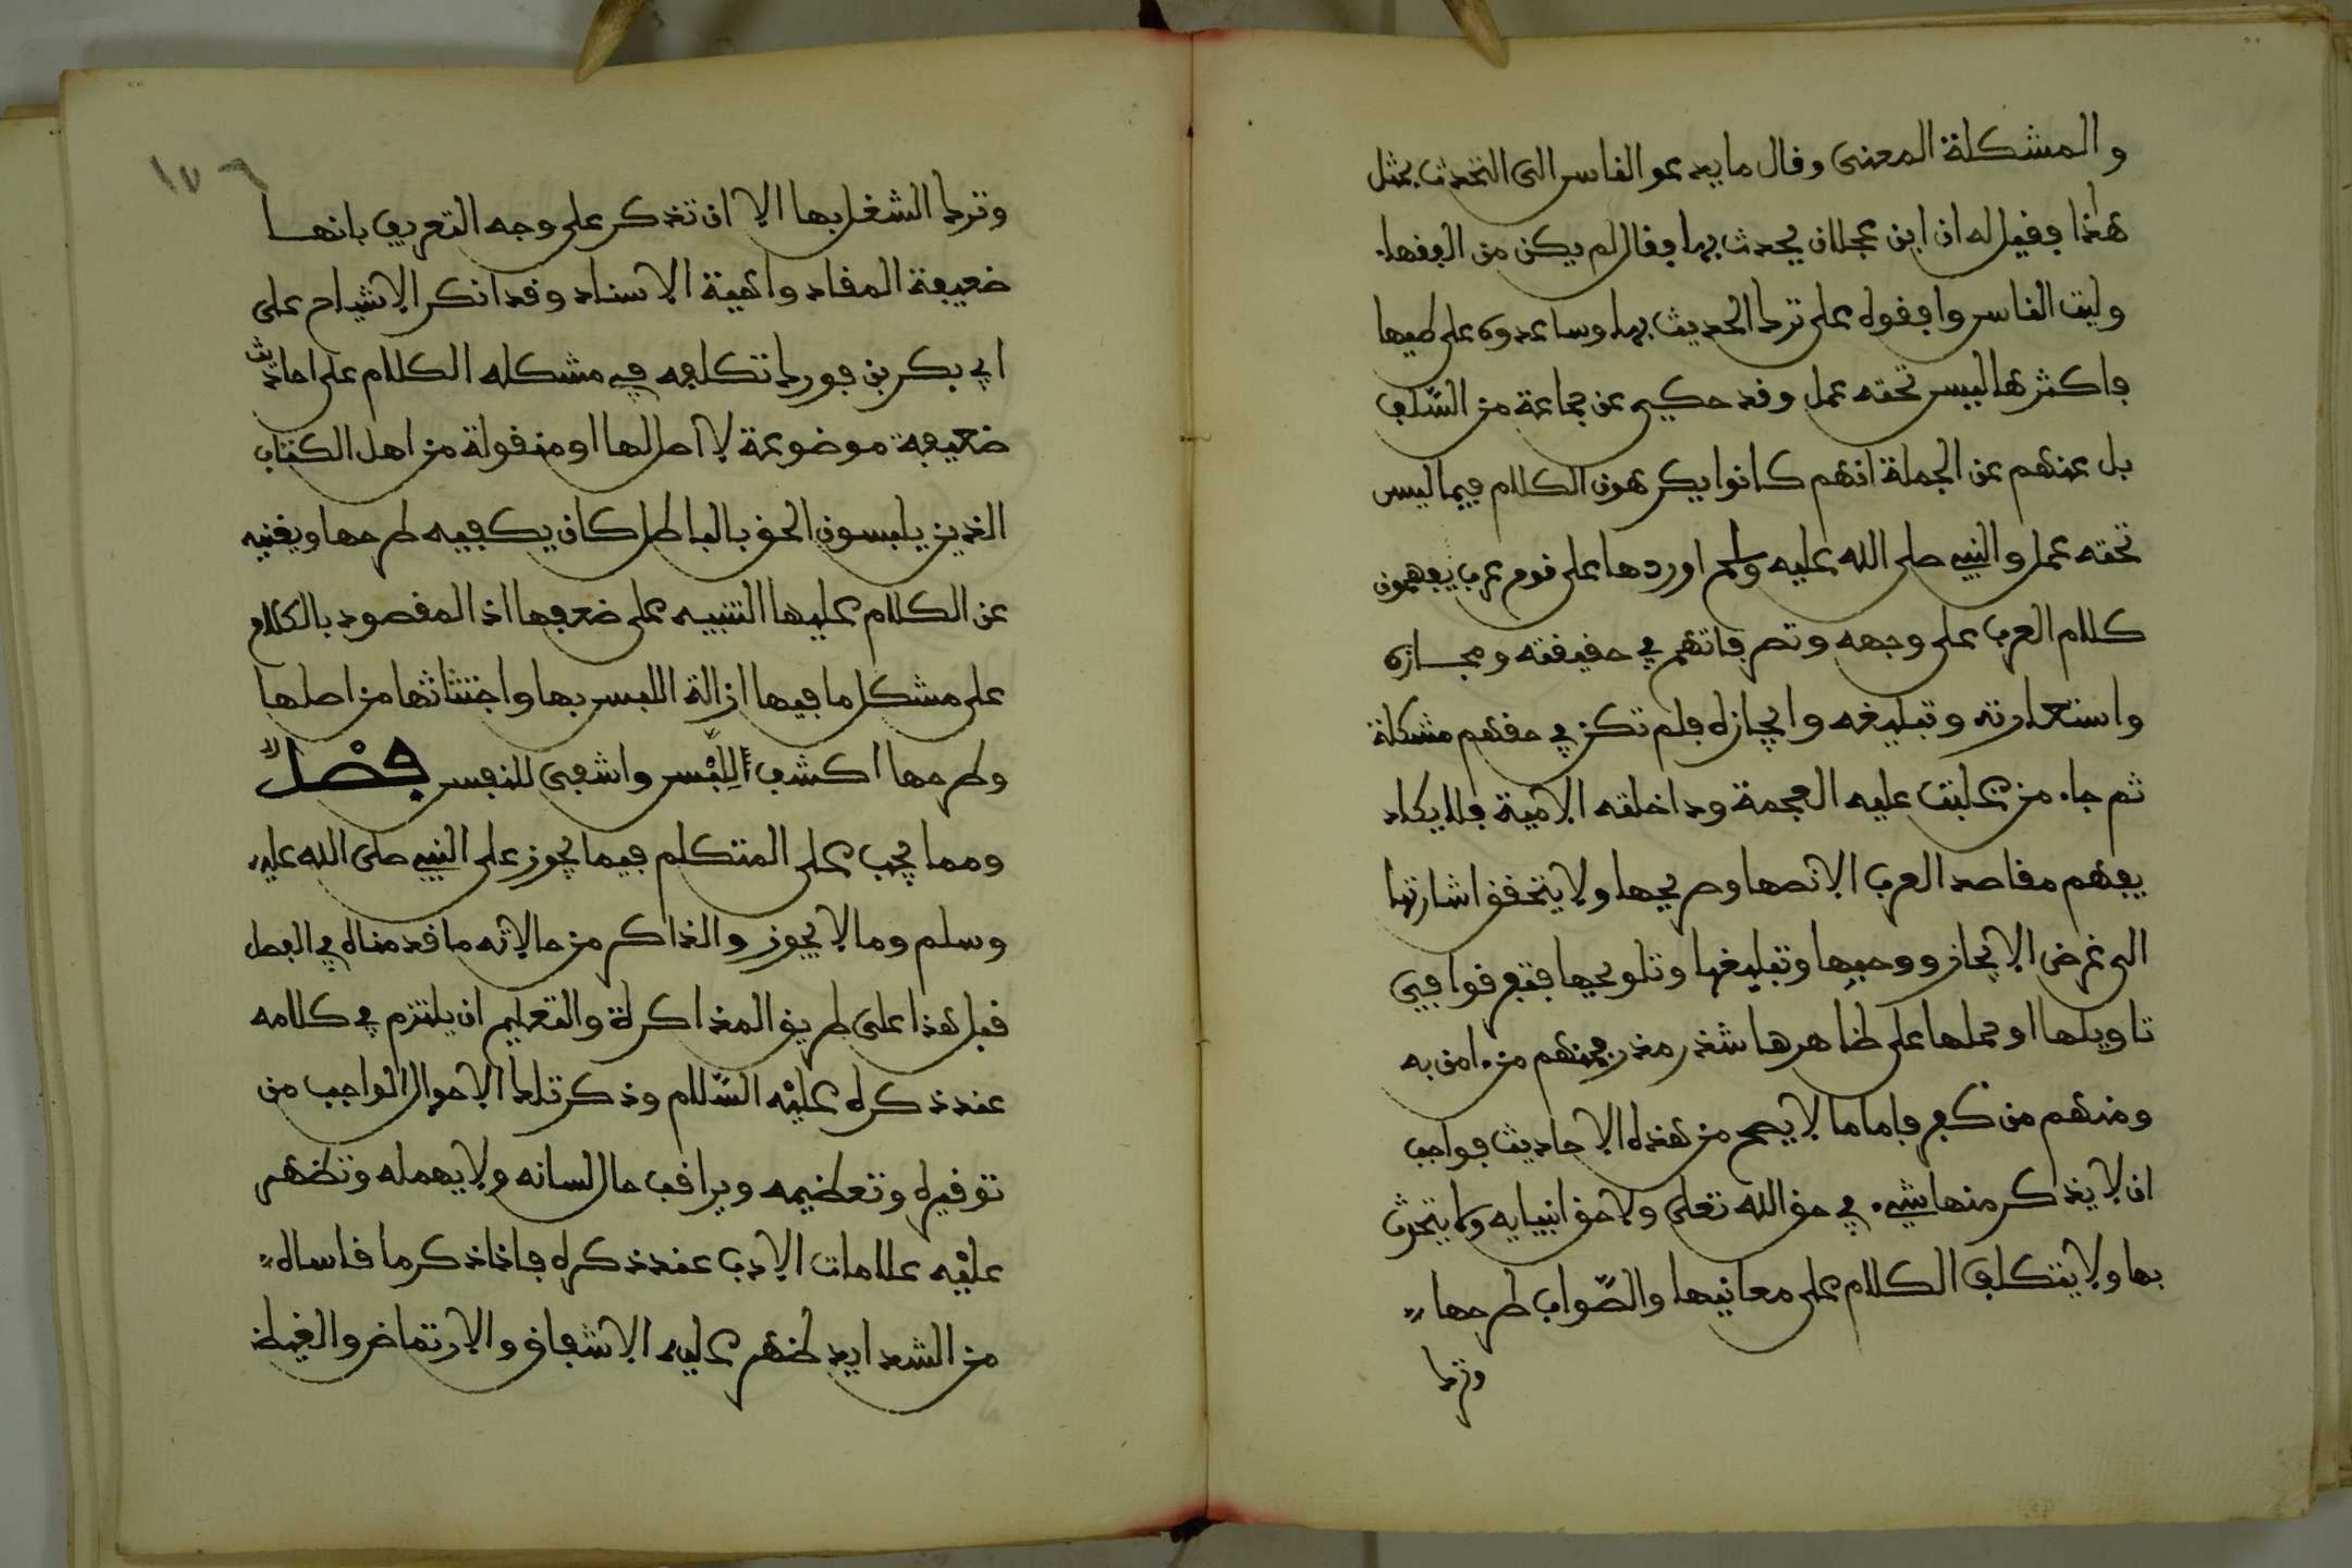 والمشكلة المعنى وقال ما يدعو الناس الى التحدث بمثل
هذا فقيل له ان ابن عجلان يحدث بها فقال لم يكن من الفقهاء
وليت الناس وافقوه على ترك الحديث بها وساعدوه على طيها
فاكثرها ليس تحته عمل وقد حكي عن جماعة من السّلف
بل عنهم عن الجملة انهم كانوا يكرهون الكلام فيما ليس
تحته عمل والنبي صلى الله عليه وسلم اوردها على قوم عرب يفهمون
كلام العرب على وجهه وتصرفاتهم في حقيقته ومجازه
واستعارته وتبليغه وايجازه فلم تكن في حقهم مشكلة
ثم جاء من غلبت عليه العجمة وداخلته الامية فلا يكاد
يفهم مقاصد العرب الا نصها وصريحها ولا يتحقق اشارتها
الى غرض الايجاز ووحيها وتبليغها وتلويحها فتفرقوا في
تاويلها او حملها على ظاهرها شذر مذر فمنهم من ءامن به
ومنهم من كفر فاما ما لا يصح من هذه الاحاديث فواجب
ان لا يذكر منها شيء في حق الله تعلى ولا حق انبيايه ولا يتحدث
بها ولا يتكلف الكلام على معانيها والصّواب طرحها
وترك
١٧٦
وترك الشغل بها الا ان تذكر على وجه التعريف بانها
ضعيفة المقاد واهية الاسناد وقد انكر الاشياخ على
ابي بكر بن فورك تكلفه في مشكله الكلام على احاديث
ضعيفة موضوعة لا اصل لها او منقولة من اهل الكتاب
الذين يلبسون الحق بالباطل كان يكفيه طرحها ويغنيه
عن الكلام عليها التنبيه على ضعفها اذ المقصود بالكلام
على مشكل ما فيها ازالة اللبس بها واجتثاثها من اصلها
وطرحها اكشف لِلّبْس واشفى للنفس فصْل
ومما يجب على المتكلم فيما يجوز على النبي صلى الله عليه
وسلم وما لا يجوز والذاكر من حالاته ما قدمناه في الفصل
قبل هذا على طريق المذاكرة والتعليم ان يلتزم في كلامه
عند ذكره عليْه السّلام وذكر تلك الاحوال الواجب من
توقيره وتعظيمه ويراقب حال لسانه ولا يهمله وتظهر
عليْه علامات الادب عند ذكره فاذا ذكر ما قاساه
من الشدايد ظهر عليه الاشفاق والارتماض والغيظ